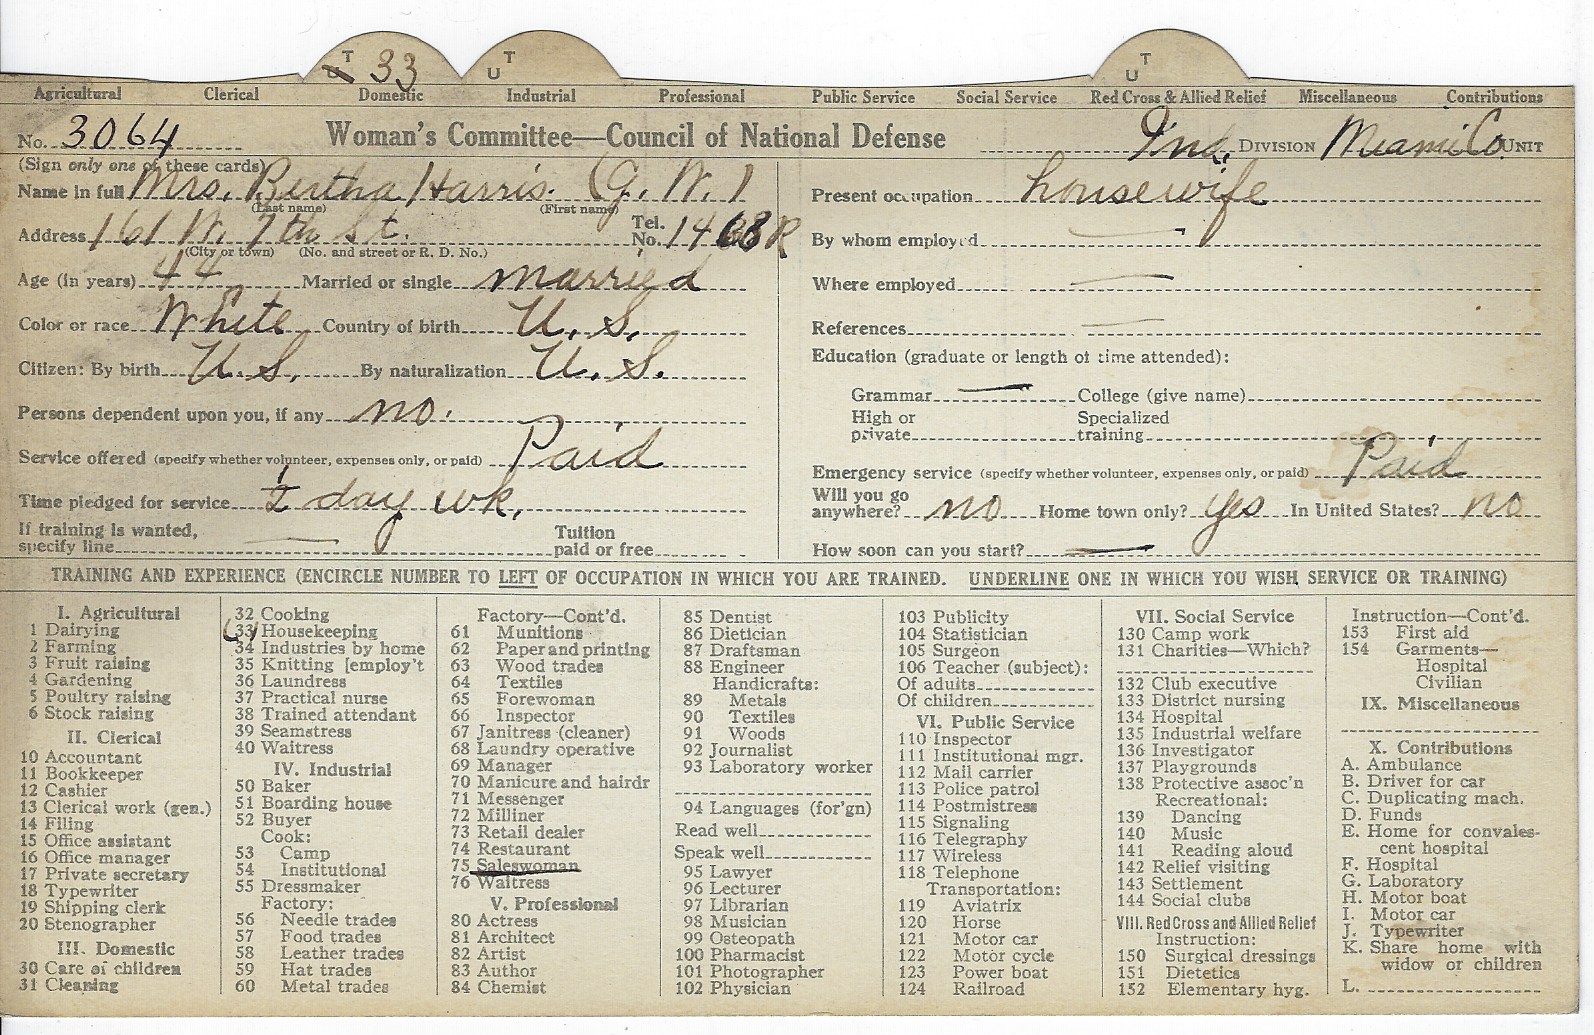 T U 33 U T U T
Agricultural Clerical Domestic Industrial Professional Public Service Social Service Red Cross & Allied Relief Miscellaneous Contributions
No. 3064 Woman's Committee—Council of National Defense Ind. DIVISION Miami Co. UNIT
(Sign only one of these cards)
Name in full Mrs. Bertha Harris. (G. W.)
(Last name) (First name)
Address 161 W. 7th St. Tel. No. 1468R
(City or town) (No. and street or R. D. No.)
Age (in years) 44 Married or single married
Color or race White Country of birth U. S.
Citizen: By birth U.S. By naturalization U. S.
Persons dependent upon you, if any no.
Service offered (specify whether volunteer, expenses only, or paid) Paid
Time pledged for service ½ day wk.
If training is wanted, Tuition
specify line paid or free
Present occupation housewife
By whom employed —
Where employed —
References —
Education (graduate or length of time attended):
Grammar — College (give name)
High or Specialized
private training
Emergency service (specify whether volunteer, expenses only, or paid) Paid
Will you go
anywhere? no Home town only? yes In United States? no
How soon can you start? —
TRAINING AND EXPERIENCE (ENCIRCLE NUMBER TO LEFT OF OCCUPATION IN WHICH YOU ARE TRAINED. UNDERLINE ONE IN WHICH YOU WISH SERVICE OR TRAINING)
I. Agricultural
1 Dairying
2 Farming
3 Fruit raising
4 Gardening
5 Poultry raising
6 Stock raising
II. Clerical
10 Accountant
11 Bookkeeper
12 Cashier
13 Clerical work (gen.)
14 Filing
15 Office assistant
16 Office manager
17 Private secretary
18 Typewriter
19 Shipping clerk
20 Stenographer
III. Domestic
30 Care of children
31 Cleaning
32 Cooking
33 Housekeeping
34 Industries by home
35 Knitting [employ't
36 Laundress
37 Practical nurse
38 Trained attendant
39 Seamstress
40 Waitress
IV. Industrial
50 Baker
51 Boarding house
52 Buyer
Cook:
53 Camp
54 Institutional
55 Dressmaker
Factory:
56 Needle trades
57 Food trades
58 Leather trades
59 Hat trades
60 Metal trades
Factory—Cont'd.
61 Munitions
62 Paper and printing
63 Wood trades
64 Textiles
65 Forewoman
66 Inspector
67 Janitress (cleaner)
68 Laundry operative
69 Manager
70 Manicure and hairdr
71 Messenger
72 Milliner
73 Retail dealer
74 Restaurant
75 Saleswoman
76 Waitress
V. Professional
80 Actress
81 Architect
82 Artist
83 Author
84 Chemist
85 Dentist
86 Dietician
87 Draftsman
88 Engineer
Handicrafts:
89 Metals
90 Textiles
91 Woods
92 Journalist
93 Laboratory worker
94 Languages (for'gn)
Read well
Speak well
95 Lawyer
96 Lecturer
97 Librarian
98 Musician
99 Osteopath
100 Pharmacist
101 Photographer
102 Physician
103 Publicity
104 Statistician
105 Surgeon
106 Teacher (subject):
Of adults
Of children
VI. Public Service
110 Inspector
111 Institutional mgr.
112 Mail carrier
113 Police patrol
114 Postmistress
115 Signaling
116 Telegraphy
117 Wireless
118 Telephone
Transportation:
119 Aviatrix
120 Horse
121 Motor car
122 Motor cycle
123 Power boat
124 Railroad
VII. Social Service
130 Camp work
131 Charities—Which?
132 Club executive
133 District nursing
134 Hospital
135 Industrial welfare
136 Investigator
137 Playgrounds
138 Protective assoc'n
Recreational:
139 Dancing
140 Music
141 Reading aloud
142 Relief visiting
143 Settlement
144 Social clubs
VIII. Red Cross and Allied Relief
Instruction:
150 Surgical dressings
151 Dietetics
152 Elementary hyg.
Instruction—Cont'd.
153 First aid
154 Garments—
Hospital
Civilian
IX. Miscellaneous
X. Contributions
A. Ambulance
B. Driver for car
C. Duplicating mach.
D. Funds
E. Home for convales-
cent hospital
F. Hospital
G. Laboratory
H. Motor boat
I. Motor car
J. Typewriter
K. Share home with
widow or children
L.